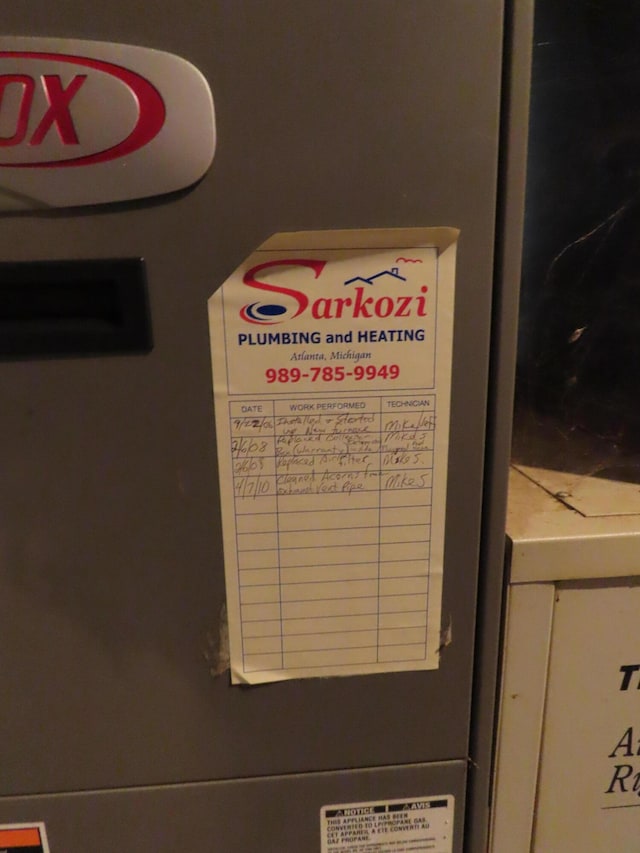 OX
Sarkozi
PLUMBING and HEATING
Atlanta, Michigan
989-785-9949
DATE WORK PERFORMED TECHNICIAN
9/22/06 Installed + Started
up New furnace Mike/Jeff
2/6/08 Replaced Collector
Box (warranty) Mike S
2/6/08 Replaced Air filter, Mike S.
4/7/10 Cleaned Acorns from
exhaust vent Pipe Mike S
NOTICE AVIS
THIS APPLIANCE HAS BEEN
CONVERTED TO LP/PROPANE GAS.
CET APPAREIL A ETE CONVERTI AU
GAZ PROPANE.